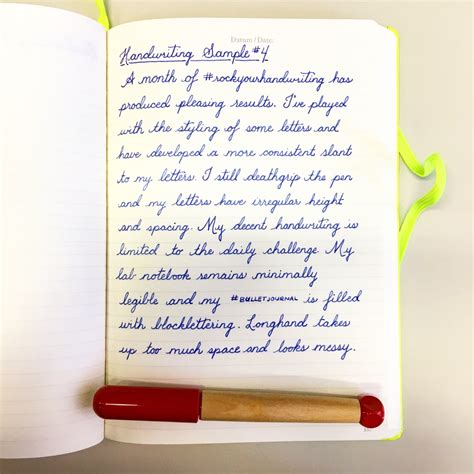 Datum / Date:
Handwriting Sample #4
A month of #rockyourhandwriting has
produced pleasing results. I've played
with the styling of some letters and
have developed a more consistent slant
to my letters. I still deathgrip the pen
and my letters have irregular height
and spacing. My decent handwriting is
limited to the daily challenge. My
lab notebook remains minimally
legible and my #BULLETJOURNAL is filled
with blocklettering. Longhand takes
up too much space and looks messy.